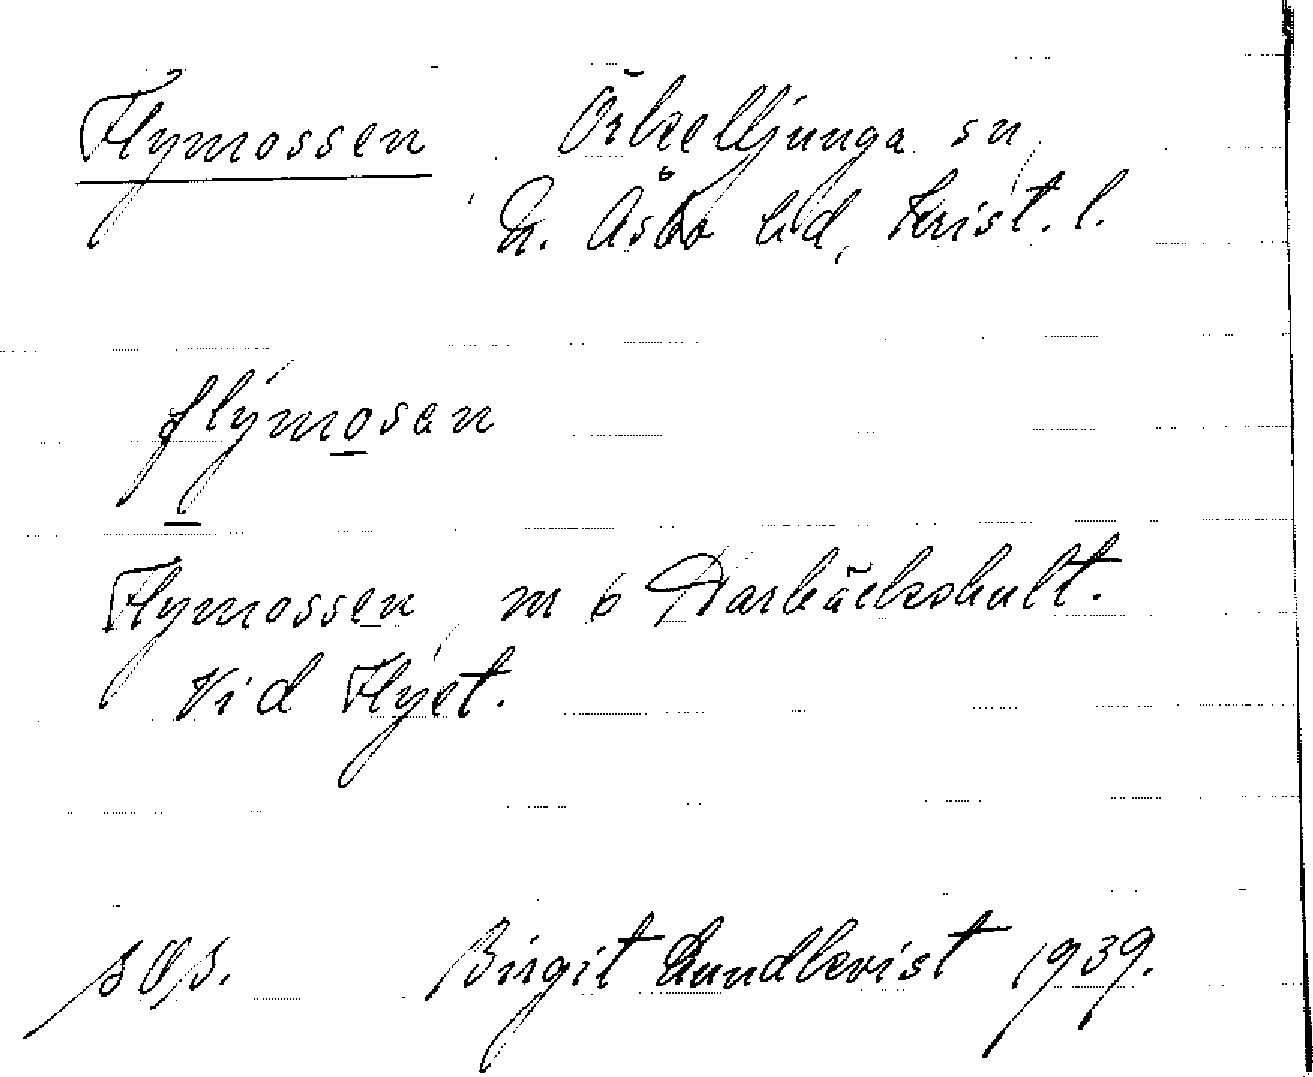 Flymossen Örkelljunga sn,
N. Åsbo hd, Krist. l.
flýmosen
Flymossen, m 6 Darbäckshult.
Vid Flyet.
Birgit Lundkvist 1939.